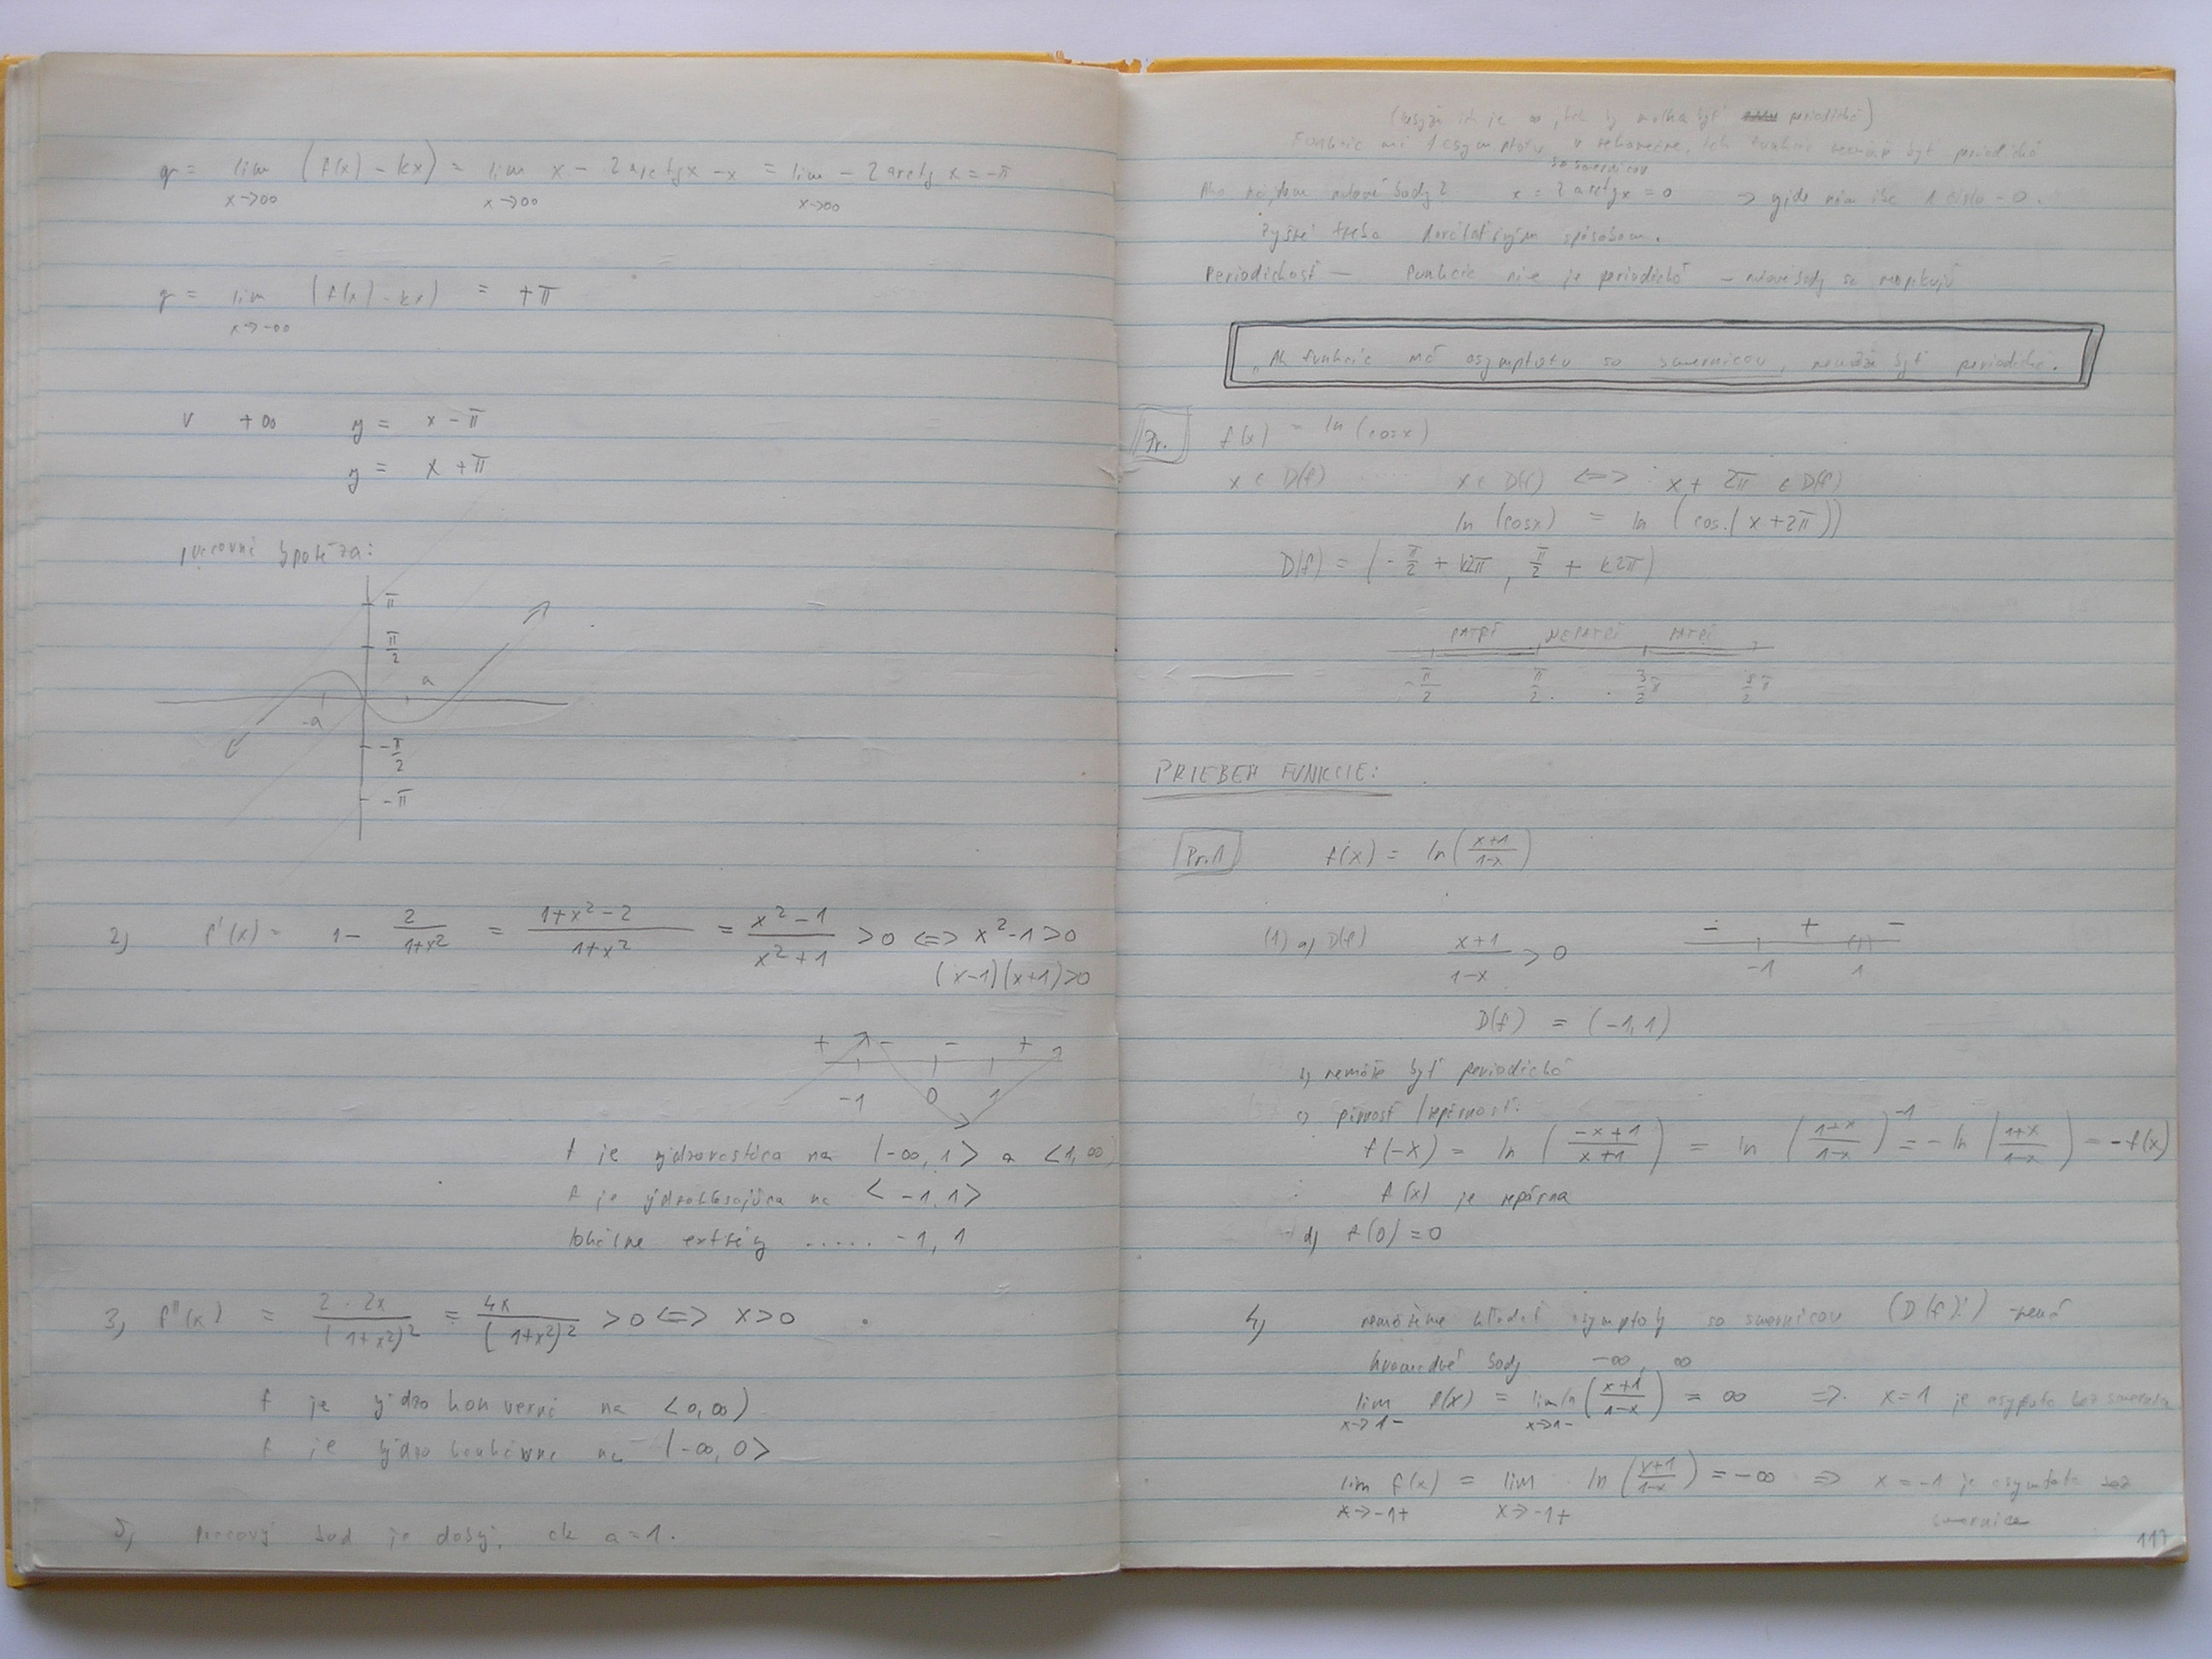 q = lim (f(x) - kx) = lim x - 2 arctg x - x = lim - 2 arctg x = -π
x→∞ x→∞ x→∞
q = lim (f(x) - kx) = +π
x→-∞
v +∞ y = x - π
y = x + π
hypotéza:
π
π/2
a
-a
-π/2
-π
2) f'(x) = 1 - 2/(1+x²) = (1+x²-2)/(1+x²) = (x²-1)/(x²+1) > 0 <=> x²-1 > 0
(x-1)(x+1)>0
+ - - +
-1 0 1
f je rýdzorastúca na (-∞, 1> a <1, ∞)
f je rýdzoklesajúca na <-1, 1>
lokálne extrémy ..... -1, 1
3) f''(x) = 2·2x/(1+x²)² = 4x/(1+x²)² > 0 <=> x > 0
f je rýdzo konvexná na <0, ∞)
f je rýdzo konkávna na (-∞, 0>
5) je dobrý, ak a = 1.
periodická)
Funkcia má 1 asymptotu v nekonečne, tak funkcia nemôže byť periodická
so smernicou
Ako nájdem nulové body? x = 2 arctg x = 0 → 1 číslo - 0.
treba spôsobom.
Periodickosť - funkcia nie je periodická - nulové body sa neopakujú
„Ak funkcia má asymptotu so smernicou, nemôže byť periodická.
Pr. f(x) = ln (cos x)
x ∈ D(f) x ∈ D(f) <=> x + 2π ∈ D(f)
ln (cos x) = ln (cos.(x + 2π))
D(f) = (-π/2 + k2π, π/2 + k2π)
PATRÍ NEPATRÍ PATRÍ
-π/2 π/2 3/2 π 5/2 π
PRIEBEH FUNKCIE:
Pr.1 f(x) = ln((x+1)/(1-x))
(1) a) D(f) (x+1)/(1-x) > 0 - + -
-1 1
D(f) = (-1, 1)
b) nemôže byť periodická
c) párnosť / nepárnosť:
f(-x) = ln((-x+1)/(x+1)) = ln((1+x)/(1-x))⁻¹ = -ln((1+x)/(1-x)) = -f(x)
f(x) je nepárna
d) f(0) = 0
4) nemôžeme hľadať asymptoty so smernicou (D(f)!) - nemá
hromadné body -∞, ∞
lim f(x) = lim ln((x+1)/(1-x)) = ∞ => x = 1 je asymptota bez
x→1- x→1-
lim f(x) = lim ln((x+1)/(1-x)) = -∞ => x = -1 je asymptota bez
x→-1+ x→-1+ smernice
117